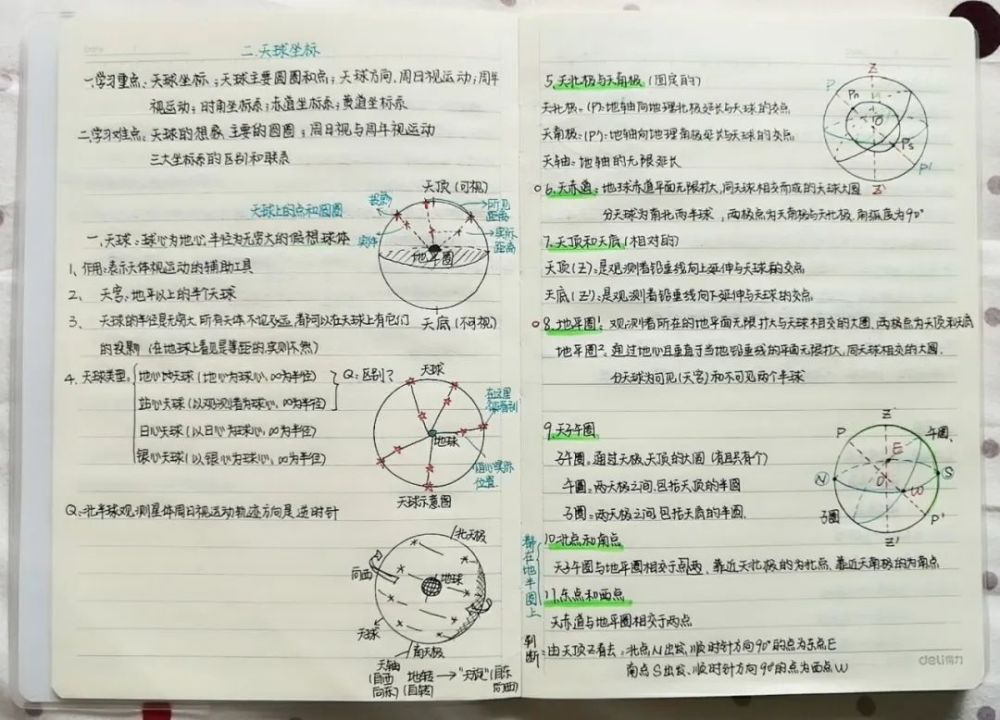 二.天球坐标
一.学习重点:天球坐标;天球主要圆圈和点;天球方向,周日视运动;周年
视运动;时角坐标系;赤道坐标系;黄道坐标系
二.学习难点:天球的想象,主要的圆圈;周日视与周年视运动
三大坐标系的区别和联系
天球上的点和圆圈
天顶(可视)
所见
距离
实际
距离
地平圈
天底(不可视)
一、天球:球心为地心,半径为无穷大的假想球体
1、作用:表示天体视运动的辅助工具
2、天宫:地平以上的半个天球
3、天球的半径是无穷大,所有天体不论多远,都可以在天球上有它们
的投影(在地球上看见是等距的实则不然)
4.天球类型:
地心天球(地心为球心,∞为半径)
站心天球(以观测者为球心,∞为半径)
日心天球(以日心为球心,∞为半径)
银心天球(以银心为球心,∞为半径)
Q:区别?
天球
在这里
地球
实际
位置
天球示意图
Q:北半球观测星体周日视运动轨迹方向是逆时针
北天极
向西
地球
天球
南天极
天轴
(自西
向东)
地转
(自转)
→"天旋"
(自东
向西)
5.天北极与天南极(固定的)
天北极:(P):地轴向地理北极延长与天球的交点
天南极:(P'):地轴向地理南极延长与天球的交点
天轴:地轴的无限延长
Z
P
Pn
O
Ps
P'
Z'
6.天赤道:地球赤道平面无限扩大,同天球相交而成的天球大圆
分天球为南北两半球,两极点为天南极与天北极,角弧度为90°
7.天顶和天底(相对的)
天顶(Z):是观测者铅垂线向上延伸与天球的交点
天底(Z'):是观测者铅垂线向下延伸与天球的交点
8.地平圈1:观测者所在的地平面无限扩大与天球相交的大圆.两极点为天顶和天底
地平圈2:通过地心且垂直于当地铅垂线的平面无限扩大,同天球相交的大圆.
分天球为可见(天宫)和不可见两个半球
9.天子午圈
子午圈:通过天极、天顶的大圆(有且只有个)
午圈:两天极之间,包括天顶的半圆
子圈:两天极之间,包括天底的半圆.
Z
P
午圈
E
N
O
S
W
子圈
P'
Z'
都在地平圈上
10.北点和南点
天子午圈与地平圈相交于点两,靠近天北极的为北点,靠近天南极的为南点
11.东点和西点
天赤道与地平圈相交于两点
判断:由天顶Z看去:北点N出发,顺时针方向90°的点为东点E
南点S出发,顺时针方向90°的点为西点W
deli得力